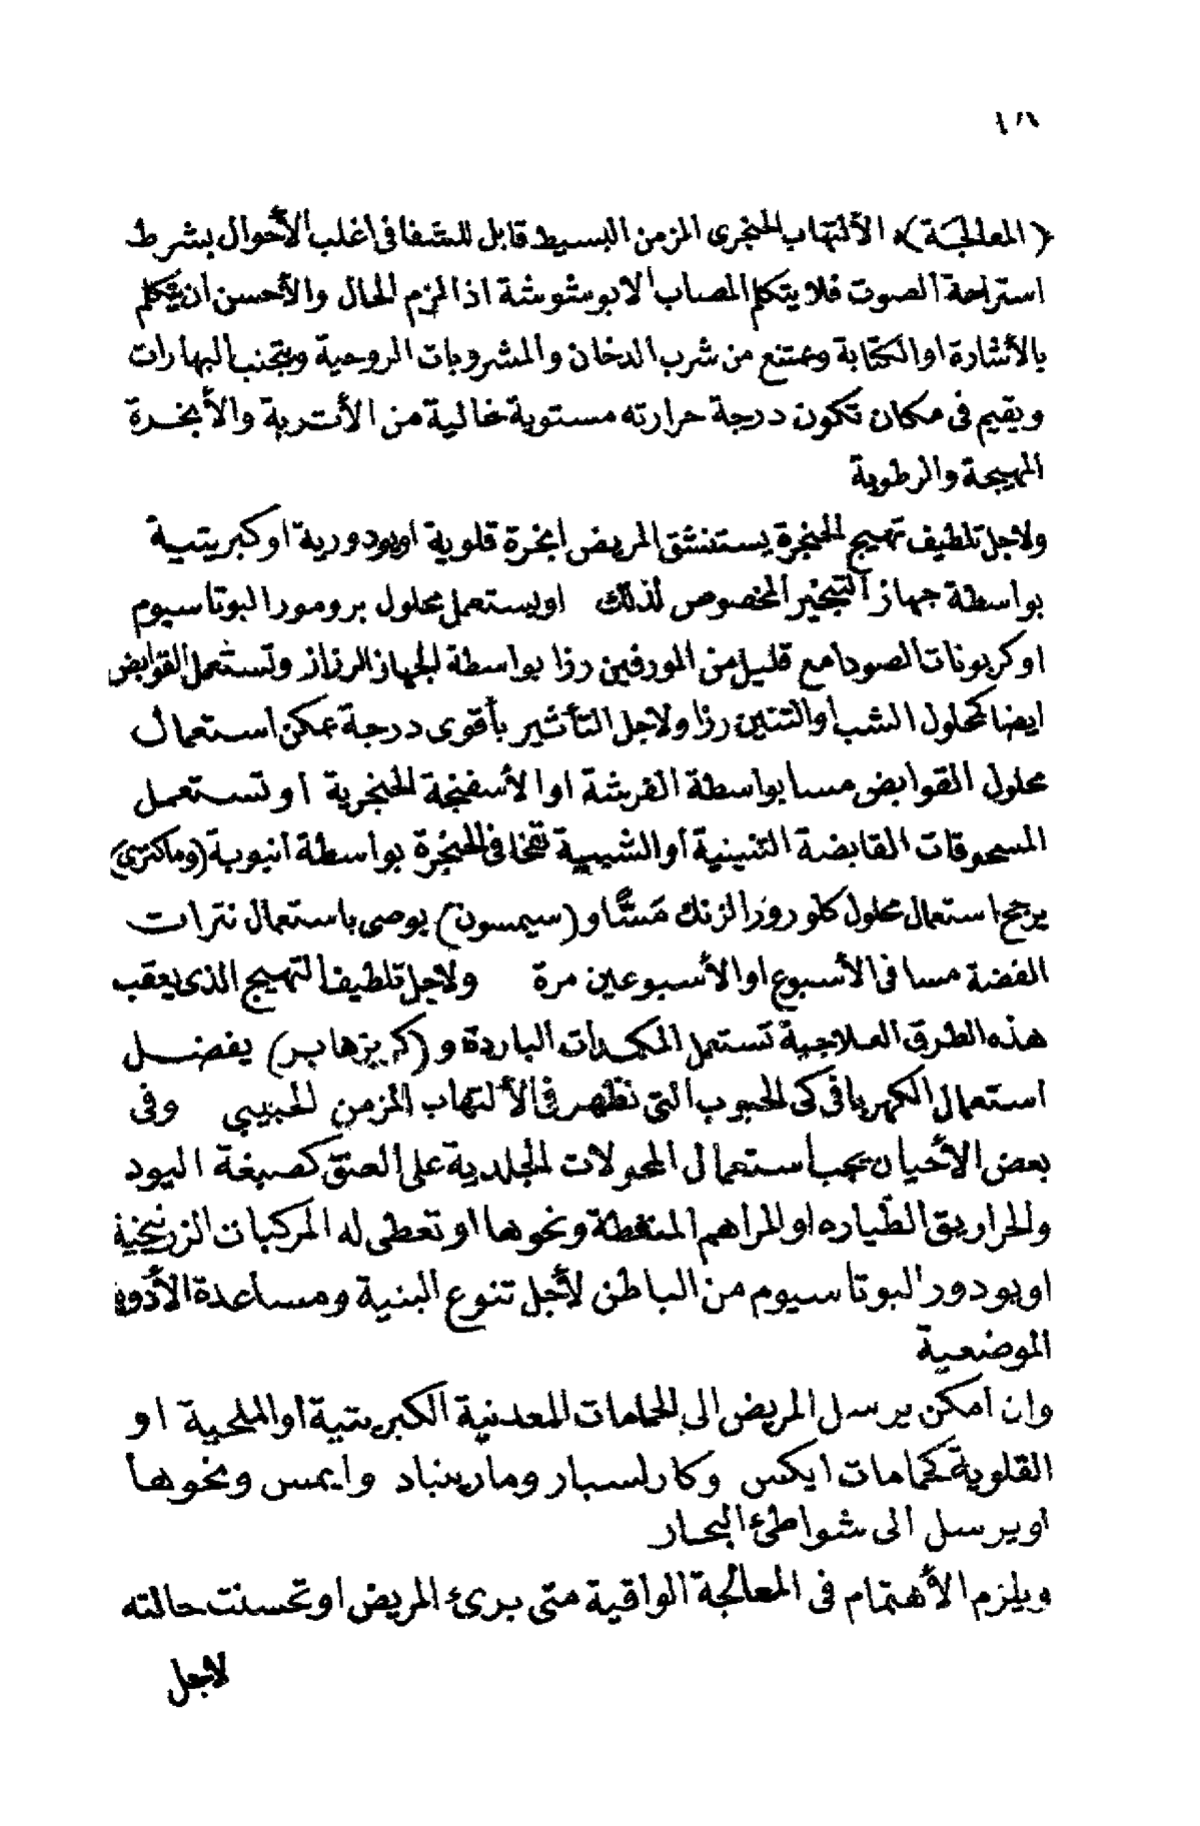 (المعالجة) الألتهاب الحنجرى المزمن البسيط قابل للشفا فى اغلب الأحوال بشرط
استراحة الصوت فلا يتكلم المصاب الا بوشوشة اذا لزم الحال والأحسن ان يتكلم
بالأشارة او الكتابة ويمتنع من شرب الدخان والمشروبات الروحية ويتجنب البهارات
ويقيم فى مكان تكون درجة حرارته مستوية خالية من الأتربة والأبخرة
المهيجة والرطوبة
ولاجل تلطيف تهيج الحنجرة يستنشق المريض ابخرة قلوية اويودورية اوكبريتية
بواسطة جهاز التبخير المخصوص لذلك اويستعمل محلول برومورالبوتاسيوم
اوكربونات الصودا مع قليل من المورفين رزا بواسطة الجهاز الرزاز وتستعمل القوابض
ايضا كمحلول الشب اوالتنين رزا ولاجل التأثير بأقوى درجة يمكن استعمال
محلول القوابض مسا بواسطة الفرشة اوالأسفنجة الحنجرية اوتستعمل
المسحوقات القابضة التنينية اوالشبيبة نفخا فى الحنجرة بواسطة انبوبة (وماكنزى)
يرجح استعمال محلول كلورورالزنك مسًّا و(سيمسون) يوصى باستعمال نترات
الفضة مسا فى الأسبوع اوالأسبوعين مرة ولاجل تلطيف التهيج الذى يعقب
هذه الطرق العلاجية تستعمل المكمدات الباردة و(كريزهابر) يفضل
استعمال الكهربا فى كى الحبوب التى تظهر فى الألتهاب المزمن الحبيبي وفى
بعض الأحيان يجب استعمال المحولات الجلدية على العنق كصبغة اليود
والحراريق الطياره اوالمراهم المنفطة ونحوها اوتعطى له المركبات الزرنيخية
اويودورالبوتاسيوم من الباطن لأجل تنوع البنية ومساعدة الأدوية
الموضعية
وان امكن يرسل المريض الى الحمامات المعدنية الكبريتية اوالملحية او
القلوية كحمامات ايكس وكارلسبار ومارينباد وايمس ونحوها
اويرسل الى شواطئ البحار
ويلزم الأهتمام فى المعالجة الواقية متى برئ المريض اوتحسنت حالته
لاجل